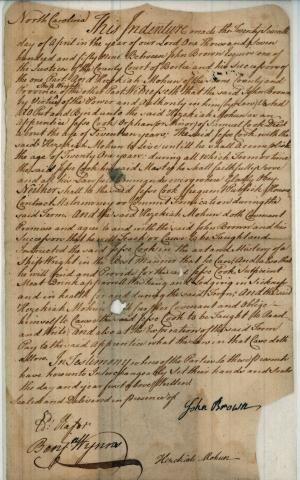 North Carolina
This Indenture made the Twenty Seventh
day of April in the year of our Lord One Thousand Seven
hundred and fifty Between John Brown Esquire one of
the Justices of the County Court of Bertie and his Successors of
the one Part And Hezekiah Mohun of the County and
Province of the other Part Witnesseth that the said John Brown
by Virtue of the Power and Authority in him
put and Bind unto the said Hezekiah Mohun as an
Apprentice John Cook Orphan of Cook Dec'd
about the age of Seventeen years The said John Cook with the
said Hezekiah Mohun to live until he shall accomplish
the age of Twenty One years during all which Term
the said John Cook the said Master shall faithfully serve
Neither shall he the said John Cook frequent
Contract Matrimony or Commit Fornication during the
said Term. And the said Hezekiah Mohun doth Covenant
Promise and agree to and with the said John Brown and his
Successors that he will Teach or Cause to be Taught and
Instructed the said John Cook in the Art and Mistery of a
Shipwright in the best Manner that he Can, And also that
he will find and Provide for the said John Cook Sufficient
Meat Drink apparel Washing and Lodging in Sickness
and in health for and during the said Term, And the said
Hezekiah Mohun doth further agree and oblige
himself to Cause the said John Cook to be Taught to Read
and Write, And also at the Expiration of the said Term
Pay to the said Apprentice what the Law in that Case doth
allow In Testimony whereof the Parties to these Presents
have hereunto Interchangeably Set their hands and seals
the day and year first above Written
Sealed and Delivered in presence of
John Brown
Benj. Wynns
Hezekiah Mohun